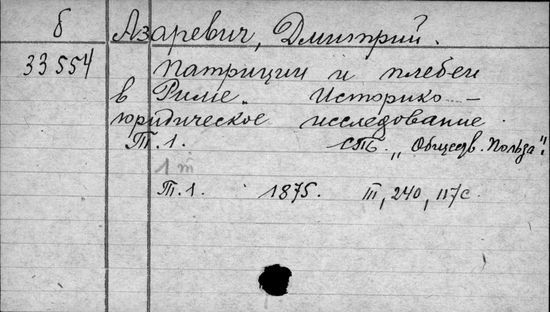 б Азаревич, Дмитрий.
33554 Патриции и плебеи
в Риме. Историко-
юридическое исследование
Т. 1. СПб. „Обществ. Польза".
1 т
Т. 1. 1875. III, 240, 117 с.